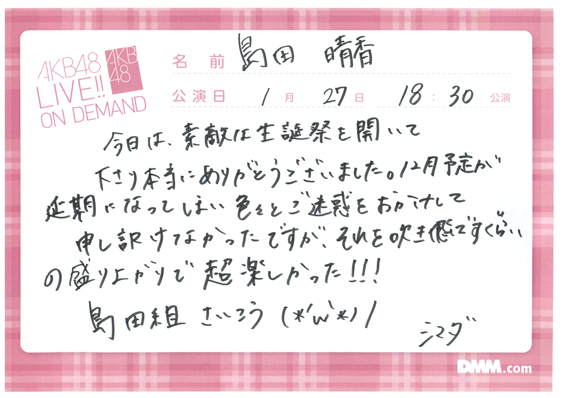 AKB48
LIVE!!
ON DEMAND
AKB
48
名前 島田 晴香
公演日 1月 27日 18:30 公演
今日は、素敵な生誕祭を開いて
下さり本当にありがとうございました。12月予定が
延期になってしまい色々とご迷惑をおかけして
申し訳けなかったですが、それを吹き飛ばすくらい
の盛り上がりで超楽しかった!!!
島田組 さいこう (*'ω'*)/
シマダ
DMM.com